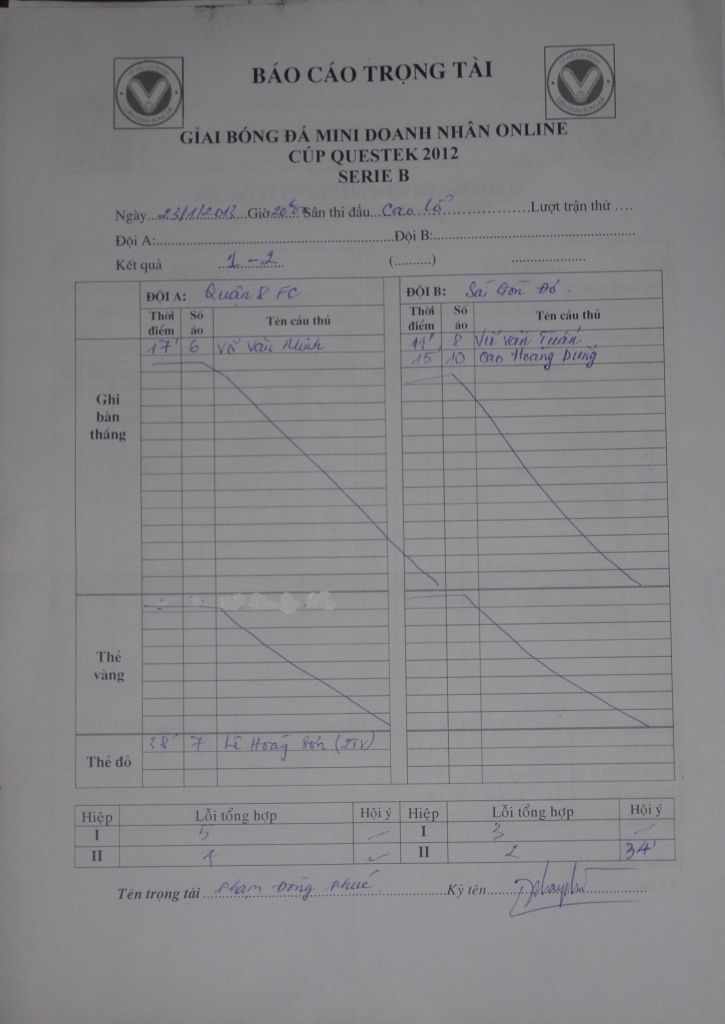 BÁO CÁO TRỌNG TÀI
GIẢI BÓNG ĐÁ MINI DOANH NHÂN ONLINE
CÚP QUESTEK 2012
SERIE B
Ngày...23/1/2013 Giờ Sân thi đấu...Cao Lỗ.....................Lượt trận thứ ....
Đội A:.......................................Đội B:.......................................
Kết quả 1 - 2 (..........) ...................
ĐỘI A: Quận 8 FC ĐỘI B: Sài Gòn Đỏ.
Thời điểm Số áo Tên cầu thủ Thời điểm Số áo Tên cầu thủ
Ghi bàn thắng
17' 6 Võ Văn Minh 11' 8 Vũ Văn Tuấn
15' 10 Cao Hoàng Dũng
Thẻ vàng
Thẻ đỏ 38' 7 Lê Hoàng Sơn (2TV)
Hiệp Lỗi tổng hợp Hội ý Hiệp Lỗi tổng hợp Hội ý
I 5 I 3
II II 2 34'
Tên trọng tài Phạm Đông Phúc Ký tên